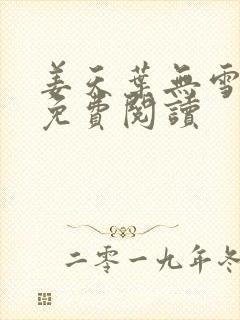 姜天葉無雪
免費閱讀
二零一九年冬